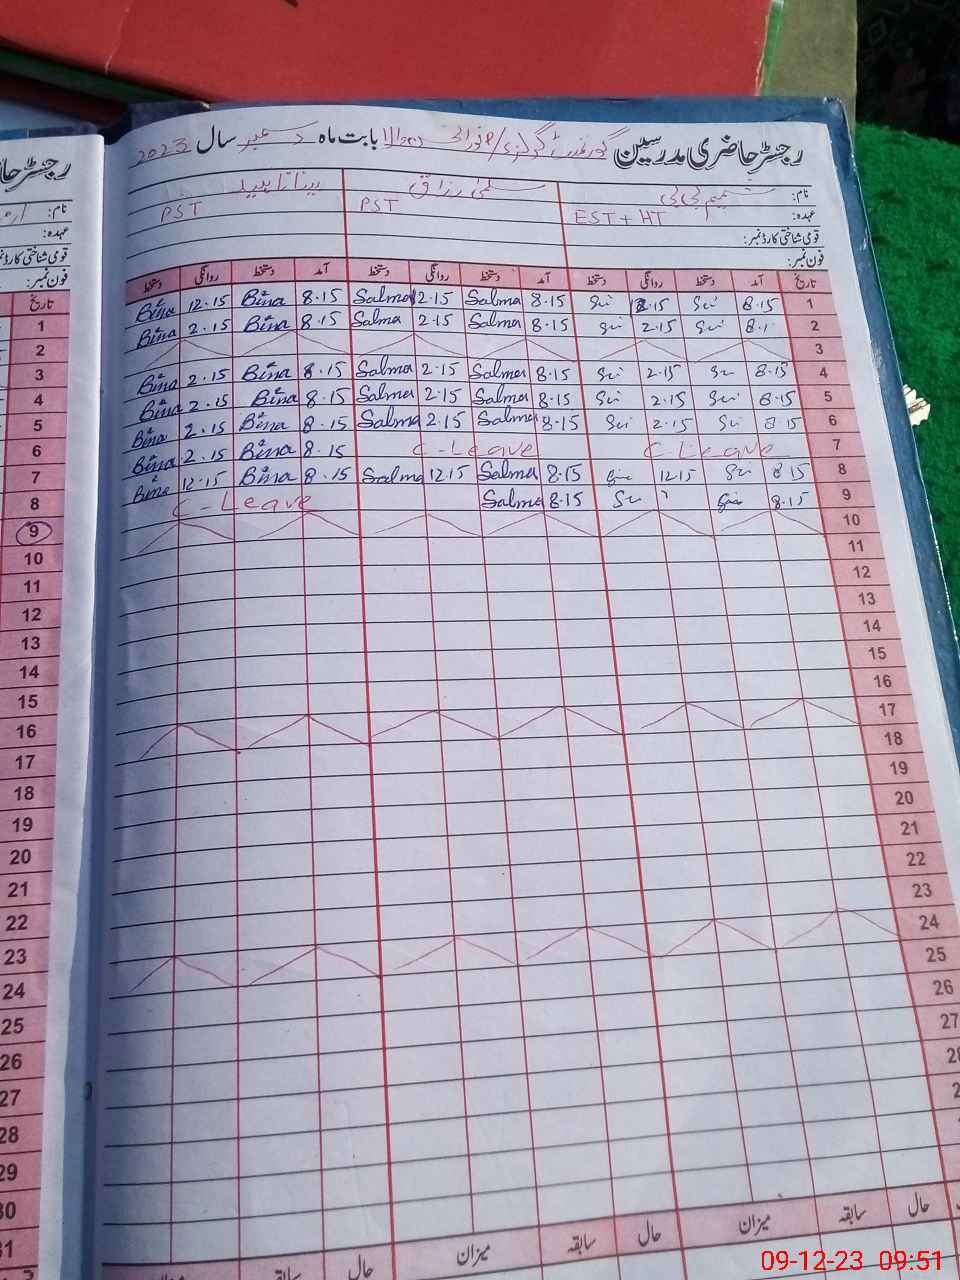 رجسٹر حاضری مدرسین گورنمنٹ گرلز / بابت ماہ دسمبر سال 2023
نام: شمیم بی بی سلمیٰ رزاق بینا ناہید
عہدہ: EST + HT PST PST
قومی شناختی کارڈ نمبر:
فون نمبر:
تاریخ آمد دستخط روانگی دستخط آمد دستخط روانگی دستخط آمد دستخط روانگی دستخط
1 8.15 2.15 8.15 Salma 12.15 Salma 8.15 Bina 12.15 Bina
2 8.1 2.15 8.15 Salma 2.15 Salma 8.15 Bina 2.15 Bina
3
4 8.15 2.15 8.15 Salma 2.15 Salma 8.15 Bina 2.15 Bina
5 8.15 2.15 8.15 Salma 2.15 Salma 8.15 Bina 2.15 Bina
6 8.15 2.15 8.15 Salma 2.15 Salma 8.15 Bina 2.15 Bina
7 C-Leave C-Leave 8.15 Bina 2.15 Bina
8 8.15 12.15 8.15 Salma 12.15 Salma 8.15 Bina 12.15 Bina
9 8.15 8.15 Salma C-Leave
10
11
12
13
14
15
16
17
18
19
20
21
22
23
24
25
26
27
28
2
حال سابقہ میزان حال سابقہ میزان حال سابقہ
رجسٹر حا
نام:
عہدہ:
قومی شناختی کارڈ نمبر:
فون نمبر:
تاریخ
1
2
3
4
5
6
7
8
9
10
11
12
13
14
15
16
17
18
19
20
21
22
23
24
25
26
27
28
29
30
31
09-12-23 09:51